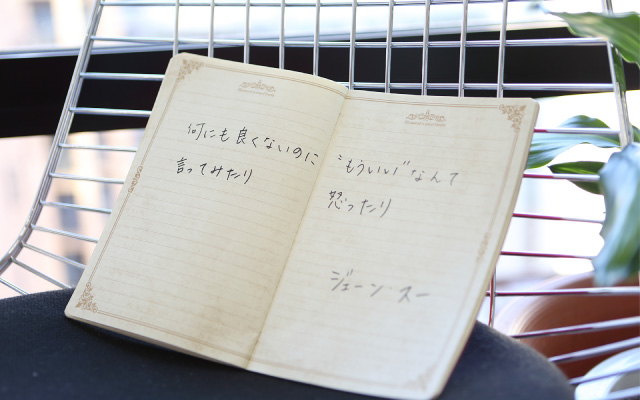 何にも良くないのに
言ってみたり
"もういい"なんて
怒ったり
ジェーン スー